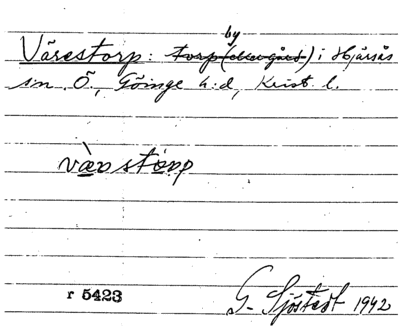 by
Värestorp: torp (eller gård) i Hjärsås
sn. Ö. Göinge h:d, Krist. l.
vàrstòrp
r 5423
G. Sjöstedt 1942